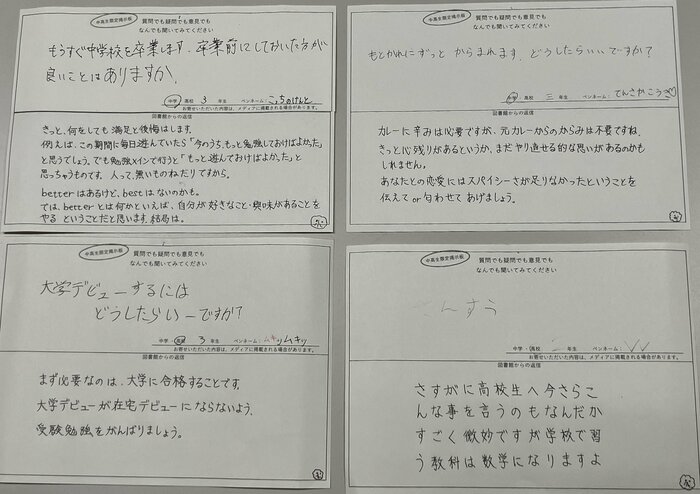 中高生限定掲示板
質問でも疑問でも意見でも
なんでも聞いてみてください
もうすぐ中学校を卒業します。卒業前にしておいた方が
良いことはありますか。
中学・高校 3 年生 ペンネーム：こっちのけんと
お寄せいただいた内容は、メディアに掲載される場合があります。
図書館からの返信
きっと、何をしても満足と後悔はします。
例えば、この期間に毎日遊んでいたら「今のうち、もっと勉強しておけばよかった」
と思うでしょう。でも勉強メインで行うと「もっと遊んでおけばよかった」と
思っちゃうものです。人って、無いものねだりですから。
betterはあるけど、bestはないのかも。
では、betterとは何かといえば、自分が好きなこと・興味があることを
やるということだと思います、結局は。
中高生限定掲示板
質問でも疑問でも意見でも
なんでも聞いてみてください
もとかれにずっとからまれます。どうしたらいいですか？
中学・高校 三 年生 ペンネーム：てんさやこうさ♡
お寄せいただいた内容は、メディアに掲載される場合があります。
図書館からの返信
カレーに辛みは必要ですが、元カレーからのからみは不要ですね。
きっと心残りがあるというか、まだやり直せる的な思いがあるのかも
しれません。
あなたとの恋愛にはスパイシーさが足りなかったということを
伝えて or 匂わせてあげましょう。
中高生限定掲示板
質問でも疑問でも意見でも
なんでも聞いてみてください
大学デビューするには
どうしたらいーですか？
中学・高校 3 年生 ペンネーム：ムキッムキッ
お寄せいただいた内容は、メディアに掲載される場合があります。
図書館からの返信
まず必要なのは、大学に合格することです。
大学デビューが在宅デビューにならないよう、
受験勉強をがんばりましょう。
中高生限定掲示板
質問でも疑問でも意見でも
なんでも聞いてみてください
さんすう
中学・高校 年生 ペンネーム：
お寄せいただいた内容は、メディアに掲載される場合があります。
図書館からの返信
さすがに高校生へ今さらこ
んな事を言うのもなんだか
すごく微妙ですが学校で習
う教科は数学になりますよ